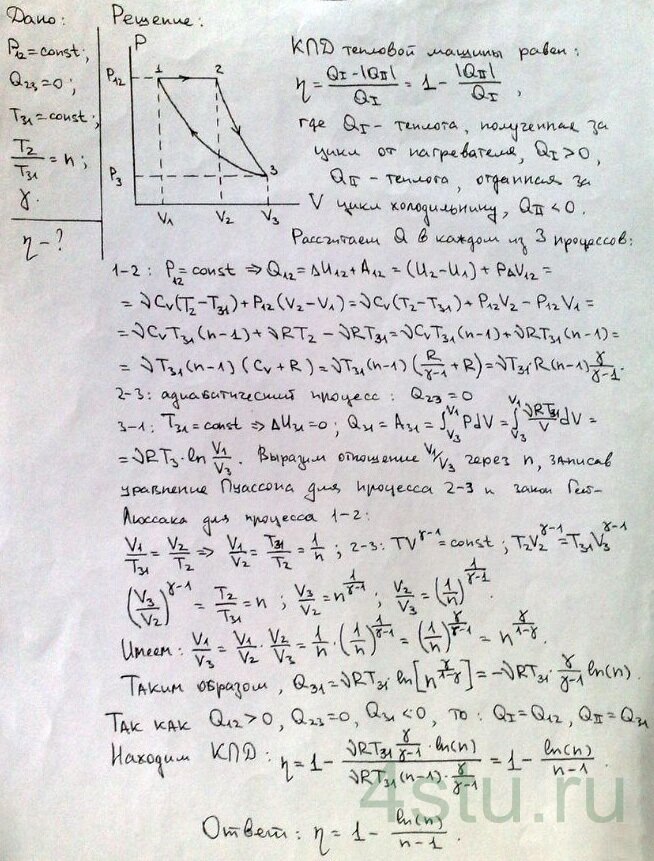 Дано:
P₁₂=const;
Q₂₃=0;
T₃₁=const;
T₂/T₃₁ = n;
γ.
η-?
Решение:
P
P₁₂
P₃
1
2
3
V₁ V₂ V₃ V
КПД тепловой машины равен:
η = (Q_I-|Q_II|)/Q_I = 1 - |Q_II|/Q_I,
где Q_I - теплота, полученная за
цикл от нагревателя, Q_I>0,
Q_II - теплота, отданная за
цикл холодильнику, Q_II<0.
Рассчитаем Q в каждом из 3 процессов:
1-2: P₁₂=const ⇒ Q₁₂=ΔU₁₂+A₁₂ = (U₂-U₁) + PΔV₁₂ =
= νC_V(T₂-T₃₁)+P₁₂(V₂-V₁) = νC_V(T₂-T₃₁)+P₁₂V₂-P₁₂V₁ =
= νC_VT₃₁(n-1)+νRT₂-νRT₃₁ = νC_VT₃₁(n-1)+νRT₃₁(n-1) =
= νT₃₁(n-1)(C_V+R) = νT₃₁(n-1)(R/(γ-1)+R) = νT₃₁R(n-1)γ/(γ-1).
2-3: адиабатический процесс: Q₂₃=0
3-1: T₃₁=const ⇒ ΔU₃₁=0; Q₃₁=A₃₁=∫_{V₃}^{V₁}PdV=∫_{V₃}^{V₁}(νRT₃₁/V)dV =
= νRT₃·ln V₁/V₃. Выразим отношение V₁/V₃ через n, записав
уравнение Пуассона для процесса 2-3 и закон Гей-
Люссака для процесса 1-2:
V₁/T₃₁ = V₂/T₂ ⇒ V₁/V₂ = T₃₁/T₂ = 1/n; 2-3: TV^(γ-1)=const; T₂V₂^(γ-1)=T₃₁V₃^(γ-1)
(V₃/V₂)^(γ-1) = T₂/T₃₁ = n; V₃/V₂ = n^(1/(γ-1)); V₂/V₃ = (1/n)^(1/(γ-1)).
Имеем: V₁/V₃ = V₁/V₂ · V₂/V₃ = 1/n·(1/n)^(1/(γ-1)) = (1/n)^(γ/(γ-1)) = n^(γ/(1-γ))
Таким образом, Q₃₁=νRT₃₁·ln[n^(γ/(1-γ))] = -νRT₃₁·γ/(γ-1) ln(n).
Так как Q₁₂>0, Q₂₃=0, Q₃₁<0, то: Q_I=Q₁₂, Q_II=Q₃₁
Находим КПД: η = 1 - (νRT₃₁ γ/(γ-1)·ln(n))/(νRT₃₁(n-1)·γ/(γ-1)) = 1 - ln(n)/(n-1).
Ответ: η = 1 - ln(n)/(n-1).
4stu.ru